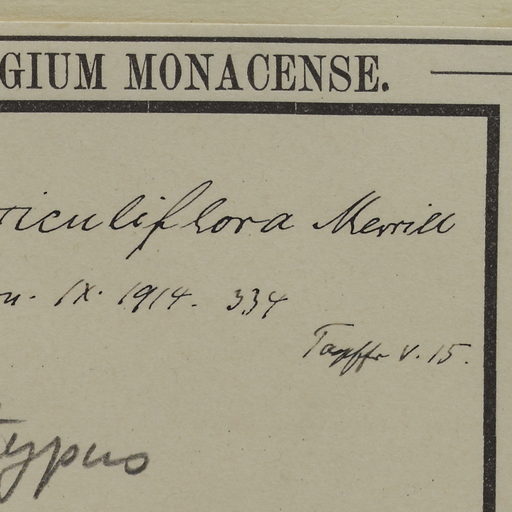 GIUM MONACENSE.
riculiflora Merrill
n. IX. 1914. 334
V. 15.
typus